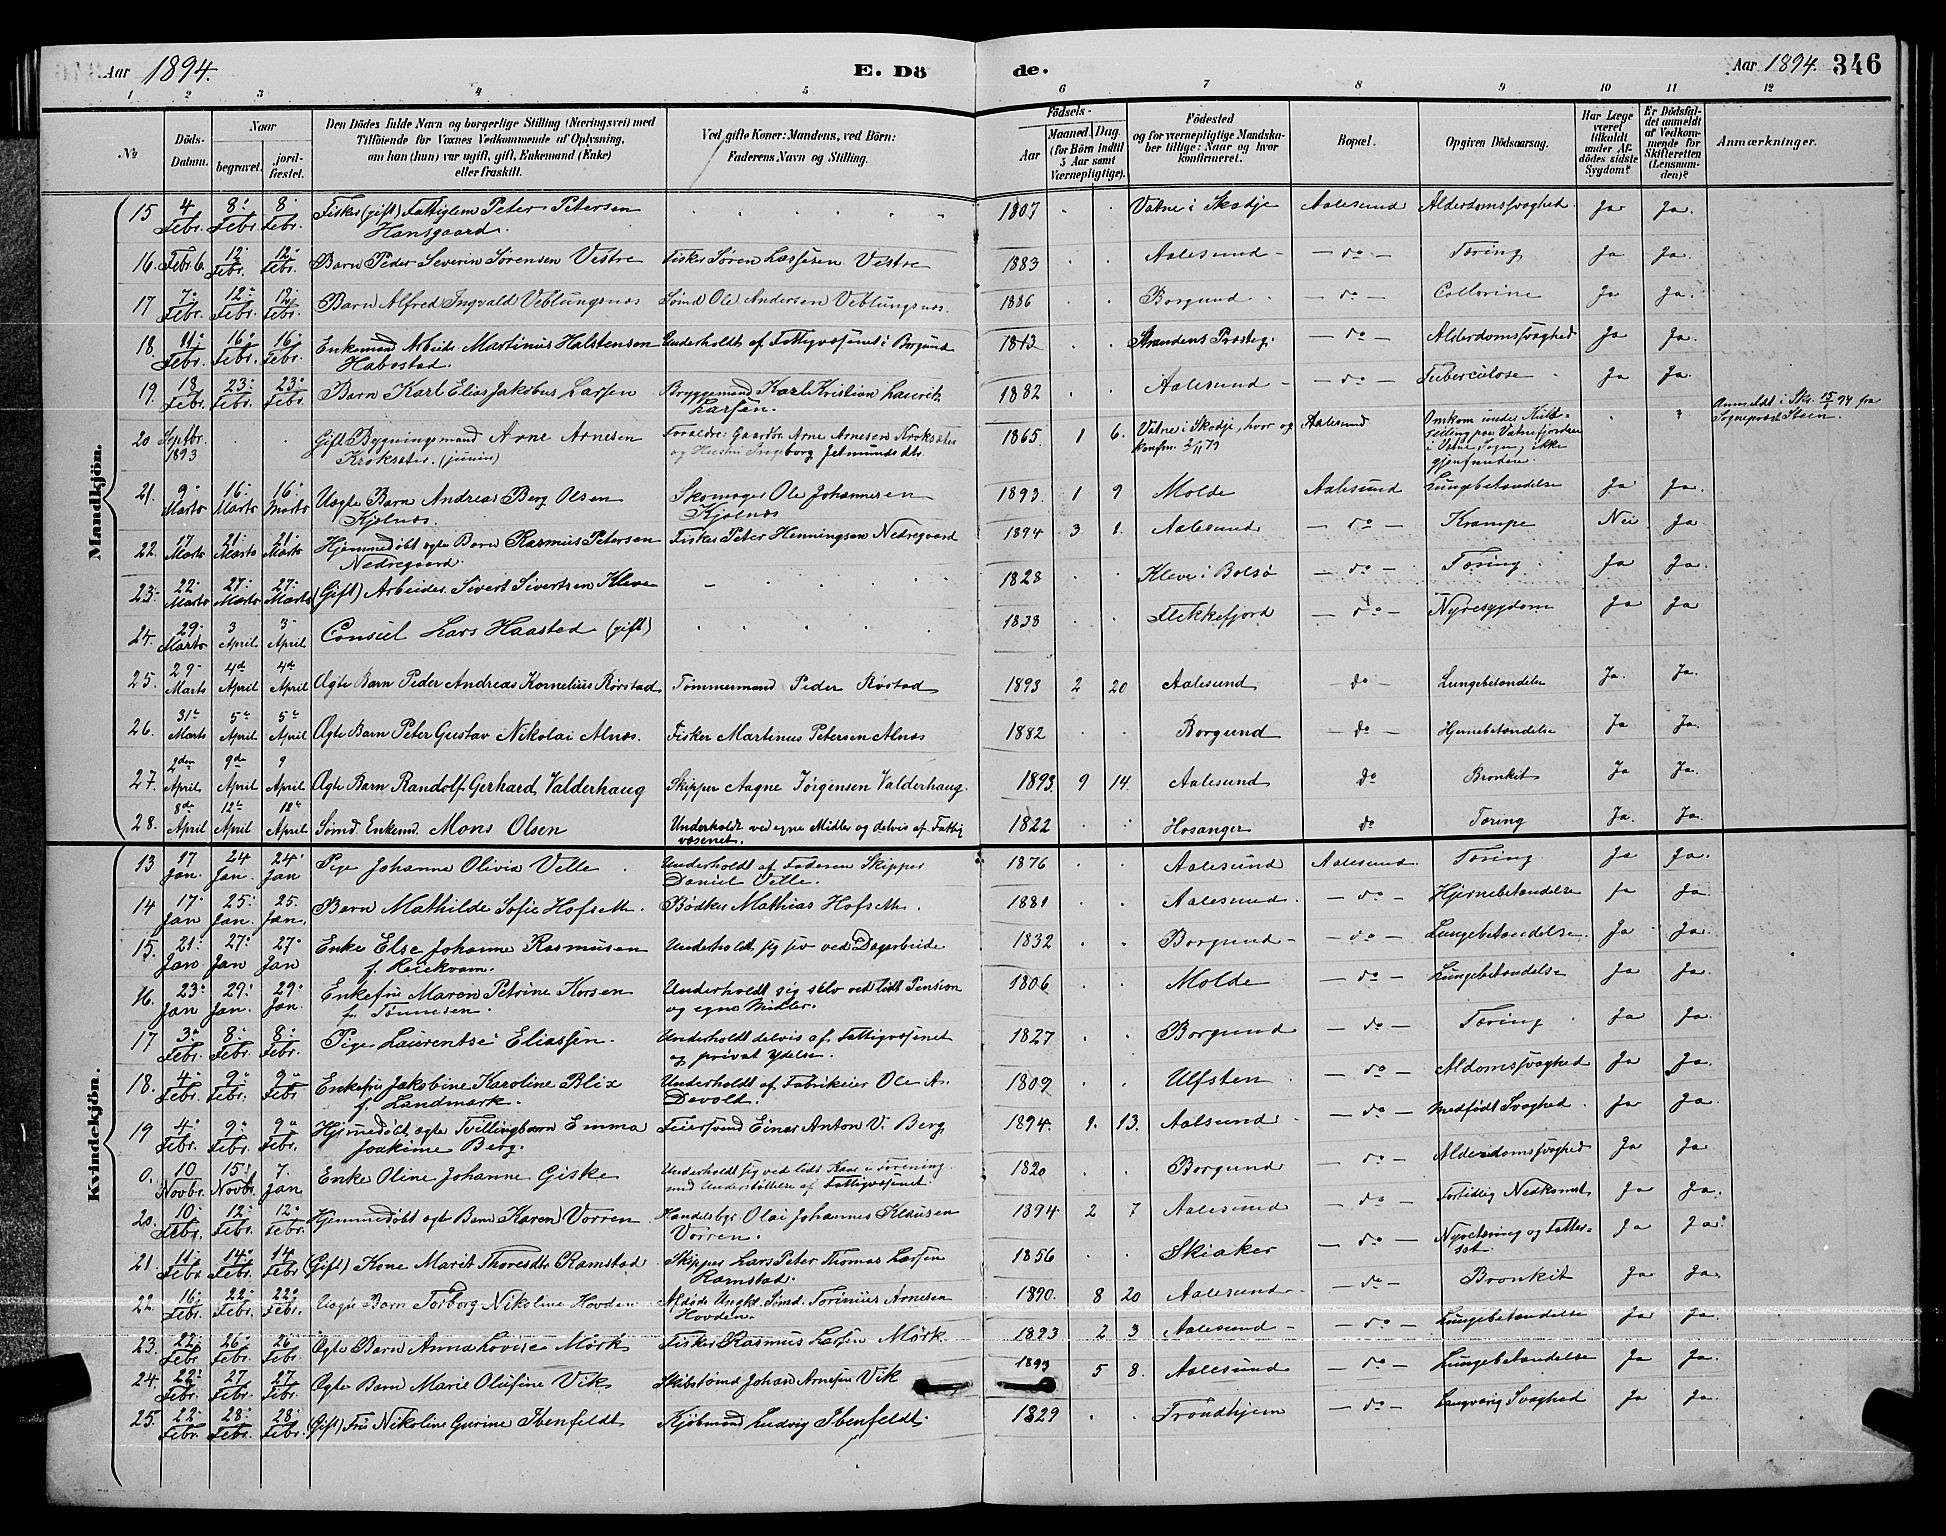 Aar 1894. E. Dö de. Aar 1894. 346
1 2 3 4 5 6 7 8 9 10 11 12
No Döds-Datum. Naar begravet. jord-fæstet. Den Dödes fulde Navn og borgerlige Stilling (Næringsvei) med Tilföiende for Voxnes Vedkommende af Oplysning, om han (hun) var ugift, gift, Enkemand (Enke) eller fraskilt. Ved gifte Koner: Mandens, ved Börn: Faderens Navn og Stilling. Födsels- Aar Maaned. Dag. (for Börn indtil 5 Aar samt Værnepligtige). Födested og for værnepligtige Mandska-ber tillige: Naar og hvor konfirmeret. Bopæl. Opgiven Dödsaarsag. Har Læge været tilkaldt under Af-dödes sidste Sygdom? Er Dödsfal-det anmeldt af Vedkom-mende for Skifteretten (Lensman-den)? Anmærkninger.
Mandkjön.
15 4 Febr. 8 Febr. 8 Febr. Fisker (gift) Fattiglem Peter Petersen Hansgaard. 1807 Vatne i Skodje Aalesund Alderdomssvaghed. Ja Ja.
16. Febr 6. 12 Febr. 12 Febr. Barn Peder Severin Sörensen Vestre Fisker Sören Lassesen Vestre 1883 Aalesund - do - Tæring Ja Ja.
17 7 Febr. 12 Febr. 12 Febr. Barn Alfred Ingvald Veblungsnæs Sömd Ole Andersen Veblungsnæs. 1886 Borgund - do - Collorine Ja Ja.
18. 11 Febr. 16 Febr. 16 Febr. Enkemand Arbeider Martinus Halstensen Habostad. Underholdt af Fattigvæsenet i Borgund 1813 Strandens Præsteg. - do - Alderdomssvaghed Ja Ja.
19. 18 Febr. 23 Febr. 23 Febr. Barn Karl Elias Jakobus Larsen Bryggemand Karl Kristian Laurits Larsen. 1882 Aalesund - do - Tuberculose Ja Ja.
20 Septbr. 1893 Gift Bygningsmand Arne Arnesen Kroksæter (junior) Foraldre: Gaardbr. Arne Arnesen Kroksæter og Hustru Ingeborg Jetmundsdtr. 1865 1 6. Vatne i Skodje, hvor og konfrm. 2/11 79 Aalesund Omkom under Kuld-seiling paa Vatnefjorden i Vatne Sogn, ikke gjenfunden. Anmeldt i Skr. 15/1 94 fra Sogneprest Steen.
21. 9 Marts 16 Marts 16 Marts Uægte Barn Andreas Berg Olsen Kjölnæs. Skomager Ole Johannesen Kjölnæs 1893. 1 9 Molde Aalesund Lungebetændelse Ja Ja.
22. 17 Marts 21 Marts 21 Marts Hjemmedöbt ægte Barn Rasmus Petersen Nedregaard. Fisker Peter Henningsen Nedregaard 1894 3 1. Aalesund - do - Krampe Nei Ja
23. 22 Marts 27 Marts 27 Marts (Gift) Arbeider Sivert Sivertsen Kleve 1828 Kleve i Bolsö - do - Tæring Ja Ja.
24. 29 Marts 3 April 3 April Consul Lars Haasted (gift) 1838 Flekkefjord - do - Nyresygdom Ja Ja
25. 29 Marts 4de April 4de April Ægte Barn Peder Andreas Kornelius Rörstad Tömmermand Peder Röstad 1893 2 20 Aalesund do Lungebetændelse Ja. Ja.
26. 31te Marts 5te April 5te April Ægte Barn Peter Gustav Nikolai Alnæs. Fisker Martinus Petersen Alnæs 1882 Borgund - do - Hjernebetændelse Ja Ja.
27. 2den April 9de April 9 April Ægte Barn Randolf Gerhard Valderhaug Skipper Aagne Jörgensen Valderhaug. 1893. 9 14. Aalesund do Bronkit Ja Ja.
28. 8de April 12te April 12te April Sömd. Enkemd. Mons Olsen Underholdt ved egne Midler og delvis af Fattigvæsenet. 1822 Hosanger do Tæring Ja. Ja.
Kvindekjön.
13 17 Jan. 24 Jan. 24 Jan Pige Johanne Olivia Velle Underholdt af Faderen Skipper Daniel Velle. 1876 Aalesund Aalesund Tæring Ja Ja.
14 17 Jan 25 Jan. 25. Jan. Barn Mathilde Sofie Hofseth. Bödker Mathias Hofseth. 1881 Aalesund - do - Hjernebetændelse Ja Ja.
15. 21 Jan 27 Jan 27 Jan Enke Else Johanne Rasmusen f. Reiekvam. Underholdt sig selv ved Dagarbeide 1832 Borgund - do - Lungebetændelse. Ja Ja.
16. 23 Jan 29 Jan. 29 Jan Enkefru Maren Petrine Korsen f. Tönnesen. Underholdt sig selv ved lidt Pension og egne Midler. 1806 Molde - do - Lungebetændelse Ja Ja.
17 3 Febr. 8 Febr. 8 Febr. Pige Laurentse Eliassen. Underholdt delvis af Fattigvæsenet og privat ydelse. 1827 Borgund - do - Tæring Ja Ja.
18. 4 Febr. 9 Febr. 9 Febr Enkefru Jakobine Karoline Blix f. Landmark. Underholdt af Fabrikeier Ole A. Devold. 1809 Ulfsten - do - Aldomssvaghed Ja Ja.
19 4 Febr. 9 Febr. 9 Febr. Hjemmedöbt ægte Tvillingbarn Emma Joakime Berg. Feiersvend Einar Anton V. Berg 1894. 1. 13. Aalsund - do - Medfödt Svaghed. Ja Ja.
0. 10 Novbr. 15 Novbr. 7. Jan Enke Oline Johanne Giske Underholdt sig ved lidt Kaar i Forening med Understöttelse af Fattigvæsenet 1820 Borgund - do - Alderdomssvaghed Ja Ja
20. 10 Febr. 12 Febr. 12 Febr. Hjemmedöbt ægte Barn Karen Vorren Handelsbgr. Olai Johannes Klausen Vorren. 1894 2 7 Aalesund - do - Fortidlig Nedkomst Ja Ja.
21. 11 Febr. 14 Febr. 14 Febr (Gift) Kone Marit Thoresdtr Ramstad Skipper Lars Peter Thomas Larsen Ramstad. 1856 Skiaker - do - Nyretæring og Fatter-sot. Ja Ja.
22. 16 Febr. 22 Febr. 22 Febr. Uægte Barn Torborg Nikoline Hovden Afdöde Ungkl. Sömd. Torinius Arnesen Hovden. 1890. 8 20 Aalesund - do - Bronkit Ja Ja.
23. 22 Febr 26 Febr. 26 Febr. Ægte Barn Anna Lovise Mörk Fisker Rasmus Larsen Mörk 1893 2 3 Aalesund - do - Lungebetændelse Ja Ja.
24. 22 Febr. 27 Febr. 27 Febr. Ægte Barn Marie Olufine Vik Skibstömd Johan Arnesen Vik 1893 5 8. Aalesund - do - Lungebetændelse Ja Ja.
25. 22 Febr. 28 Febr. 28 Febr. (Gift) Fru Nikoline Gurine Ibenfeldt Kjöbmand Ludvig Ibenfeldt. 1829 Trondhjem - do - Langvarig Svaghed Ja Ja.